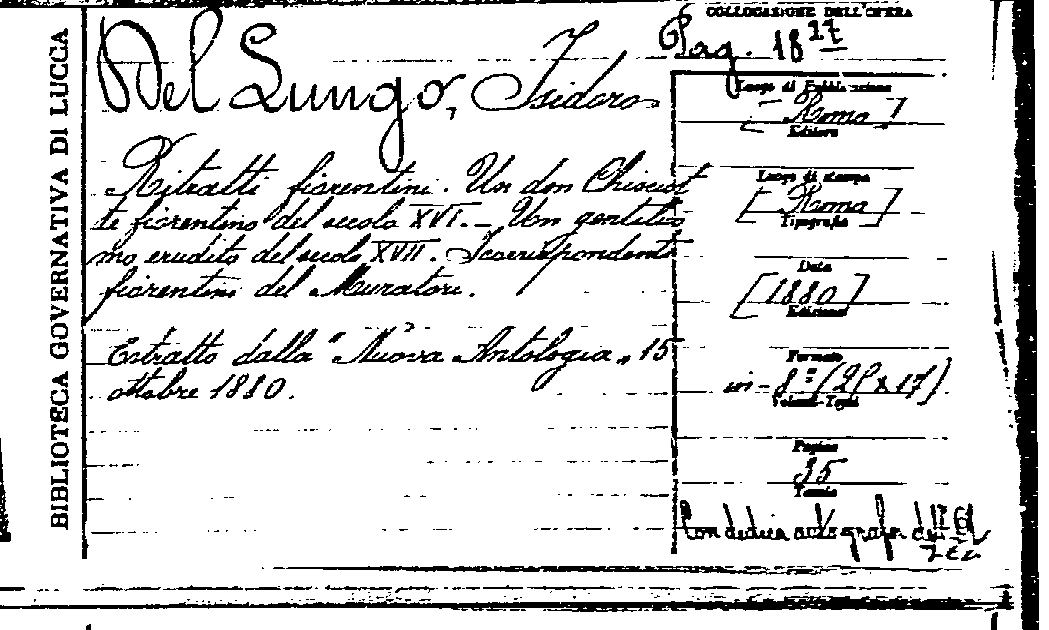 BIBLIOTECA GOVERNATIVA DI LUCCA
COLLOCAZIONE DELL'OPERA
Pag. 18 27
Del Lungo, Isidoro
Luogo di Pubblicazione
[Roma]
Editore
Ritratti fiorentini. Un don Chisciot
te fiorentino del secolo XVI. - Un gentiluo
mo erudito del secolo XVII. I corrispondenti
fiorentini del Muratori.
Luogo di stampa
[Roma]
Tipografia
Data
[1880]
Edizione
Estratto dalla "Nuova Antologia" 15
ottobre 1880.
Formato
in-8º (25x17)
Volumi-Tomi
Pagine
35
Tavole
Con dedica autografa